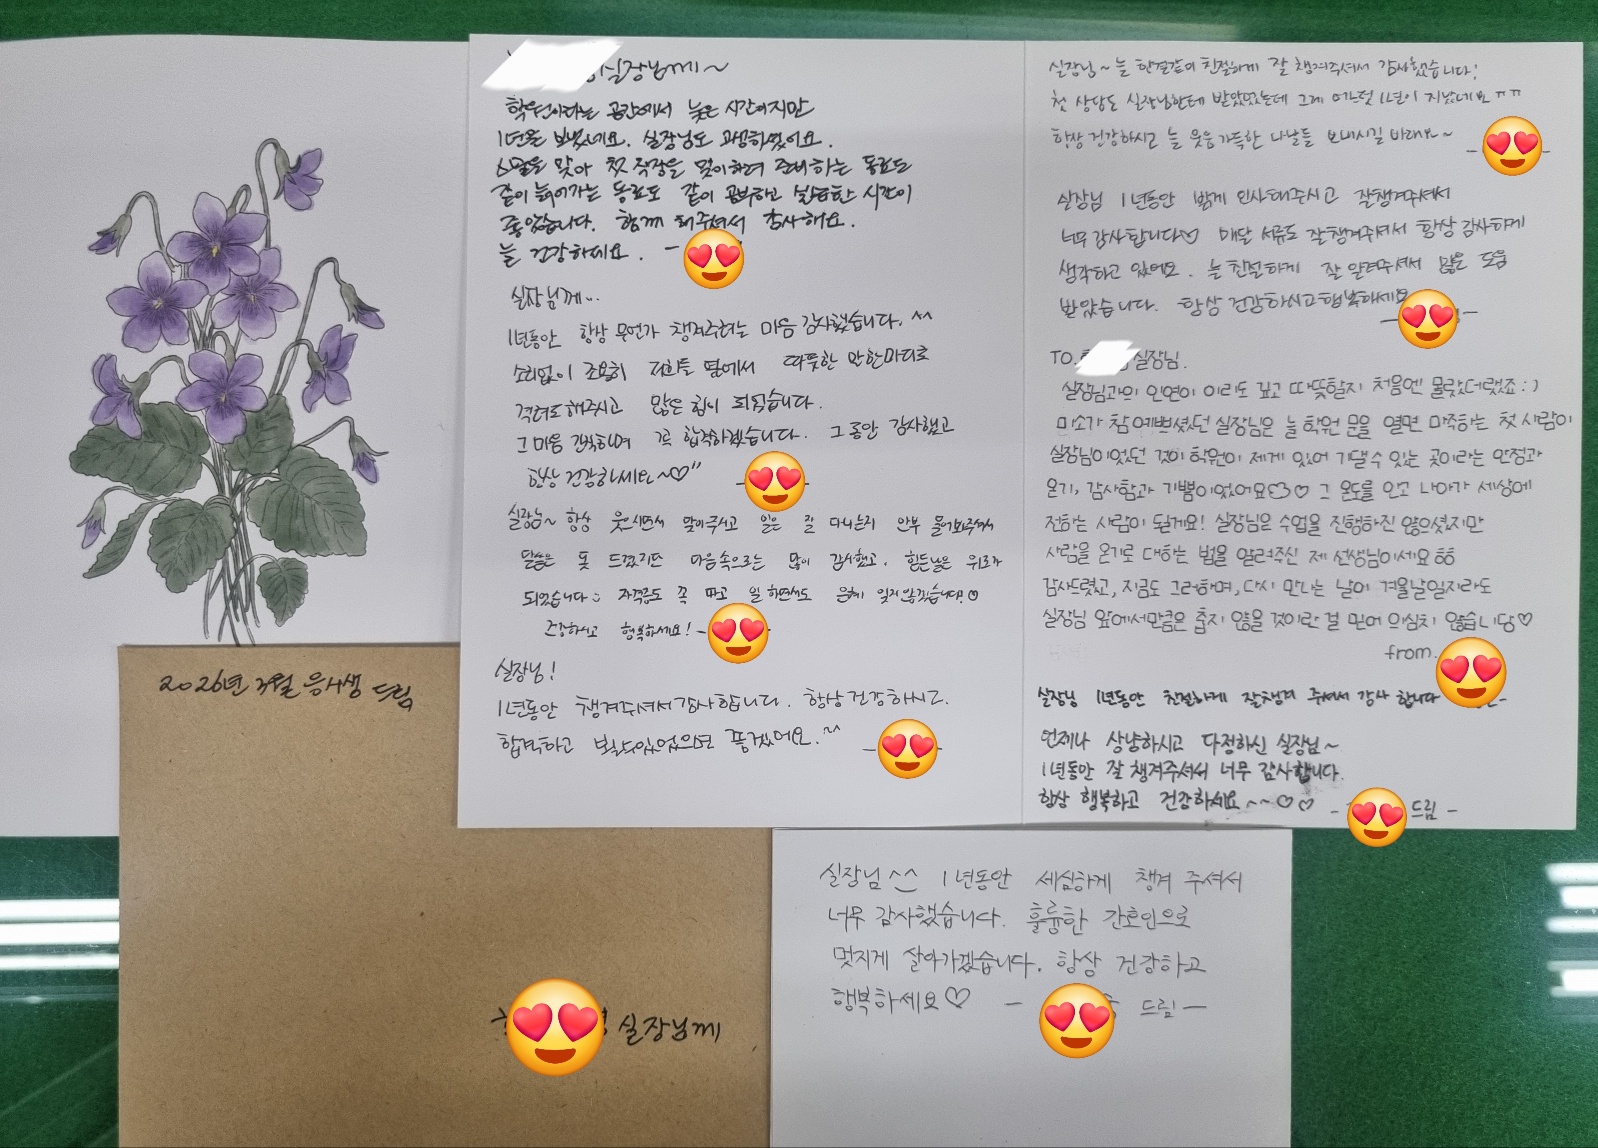 실장님께~
학원이라는 공간에서 늦은 시간이지만
1년을 보냈네요. 실장님도 고생하셨어요.
맞아 첫 직장을 준비하는 동료도
같이 늙어가는 동료도 같이 공부하고 실습한 시간이
좋았습니다. 함께 해주셔서 감사해요.
늘 건강하세요. -
실장님께...
1년동안 항상 무언가 챙겨주려는 마음 감사했습니다. ^^
소리없이 조용히 저희들 옆에서 따뜻한 말한마디로
격려도 해주시고 많은 힘이 되었습니다.
그 마음 간직하며 꼭 합격하겠습니다. 그동안 감사했고
항상 건강하세요~♡"
실장님~ 항상 웃으시면서 맞아주시고 일은 잘 다니는지 안부 물어봐주셔서
말씀은 못 드렸지만 마음속으로는 많이 감사했고, 힘든날은 위로가
되었습니다:) 자격증도 꼭 따고 일 하면서도 은혜 잊지않겠습니다!☺
건강하시고 행복하세요! -
실장님!
1년동안 챙겨주셔서 감사합니다. 항상 건강하시고.
합격하고 뵐 수 있었으면 좋겠어요.^^
실장님~ 늘 한결같이 친절하게 잘 챙겨주셔서 감사했습니다!
첫 상담도 실장님한테 받았었는데 그게 어느덧 1년이 지났네요ㅠㅠ
항상 건강하시고 늘 웃음 가득한 나날들 보내시길 바래요~
실장님 1년동안 밝게 인사해주시고 잘챙겨주셔서
너무 감사합니다♡ 매달 서류도 잘챙겨주셔서 항상 감사하게
생각하고 있어요. 늘 친절하게 잘 알려주셔서 많은 도움
받았습니다. 항상 건강하시고 행복하세요
TO. 실장님.
실장님과의 인연이 이리도 깊고 따뜻할지 처음엔 몰랐더랬죠:)
미소가 참 예쁘셨던 실장님은 늘 학원 문을 열면 마주하는 첫 사람이
실장님이었던 것이 학원이 제게 있어 기댈 수 있는 곳이라는 안점과
온기, 감사함과 기쁨이었어요♡ 그 온도를 안고 나아가 세상에
전하는 사람이 될게요! 실장님은 수업을 진행하진 않으셨지만
사람을 온기로 대하는 법을 알려주신 제 선생님이세요ㅎㅎ
감사드렸고, 지금도 그러하며, 다시 만나는 날이 겨울날일지라도
실장님 앞에서만큼은 춥지 않을 것이란 걸 믿어 의심치 않습니당♡
from.
실장님 1년동안 친절하게 잘챙겨 주셔서 감사 합니다
언제나 상냥하시고 다정하신 실장님~
1년동안 잘 챙겨주셔서 너무 감사합니다.
항상 행복하고 건강하세요~~♡♡
- 드림 -
2026년 3월 응시생 드림
실장님께
실장님^^ 1년동안 세심하게 챙겨 주셔서
너무 감사했습니다. 훌륭한 간호인으로
멋지게 살아가겠습니다. 항상 건강하고
행복하세요♡ - 드림 -